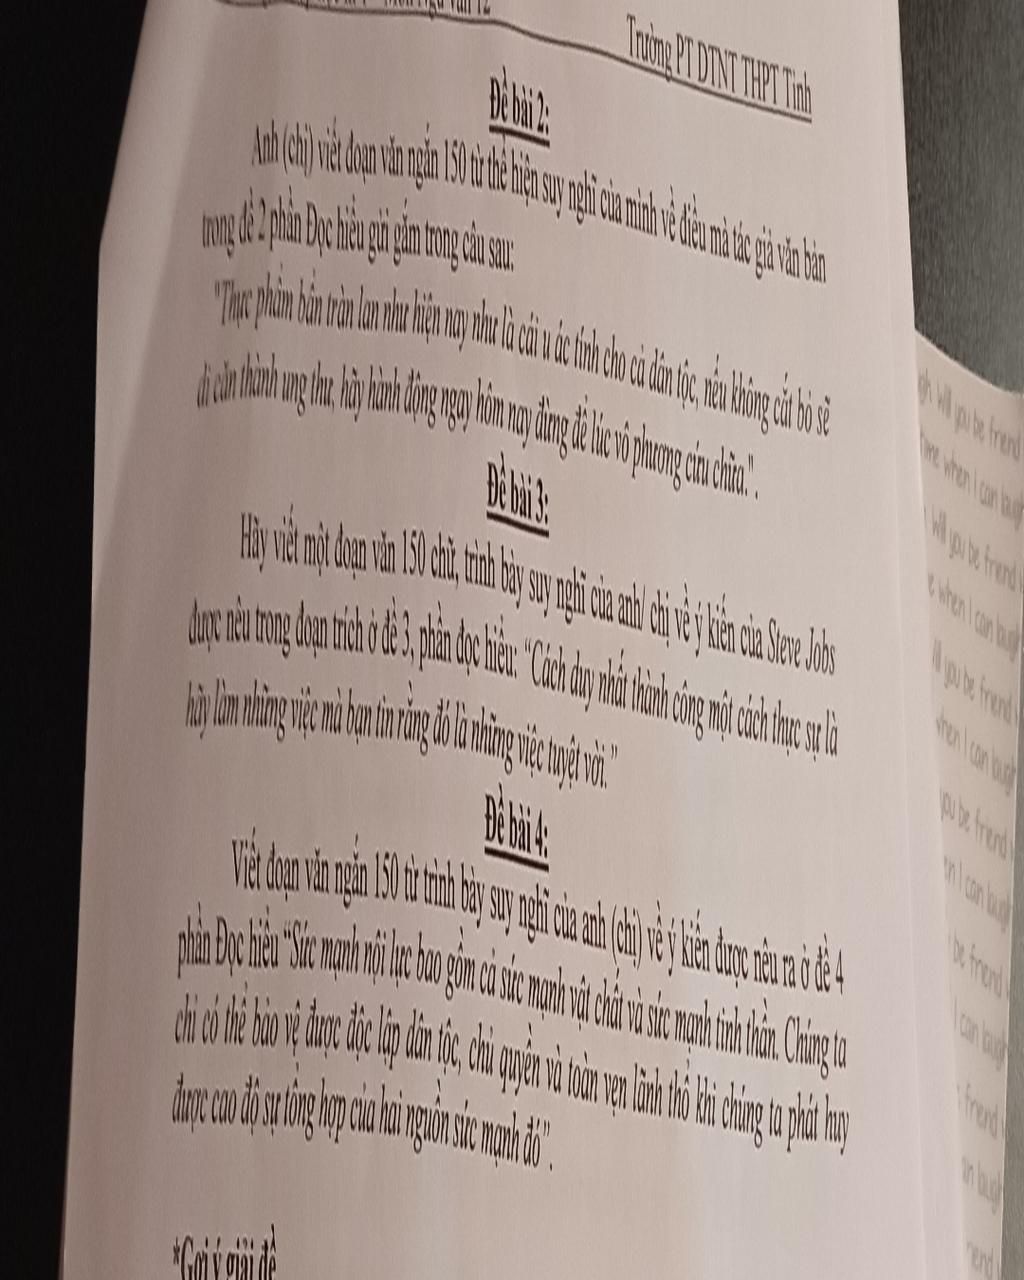 Môn Ngữ văn 12
Trường PT DTNT THPT Tỉnh
Đề bài 2:
Anh (chị) viết đoạn văn ngắn 150 từ thể hiện suy nghĩ của mình về điều mà tác giả văn bản
trong đề 2 phần Đọc hiểu gửi gắm trong câu sau:
"Thực phẩm bẩn tràn lan như hiện nay như là cái u ác tính cho cả dân tộc, nếu không cắt bỏ sẽ
di căn thành ung thư, hãy hành động ngay hôm nay đừng để lúc vô phương cứu chữa.".
Đề bài 3:
Hãy viết một đoạn văn 150 chữ, trình bày suy nghĩ của anh/ chị về ý kiến của Steve Jobs
được nêu trong đoạn trích ở đề 3, phần đọc hiểu: “Cách duy nhất thành công một cách thực sự là
hãy làm những việc mà bạn tin rằng đó là những việc tuyệt vời.”
Đề bài 4:
Viết đoạn văn ngắn 150 từ trình bày suy nghĩ của anh (chị) về ý kiến được nêu ra ở đề 4
phần Đọc hiểu “Sức mạnh nội lực bao gồm cả sức mạnh vật chất và sức mạnh tinh thần. Chúng ta
chỉ có thể bảo vệ được độc lập dân tộc, chủ quyền và toàn vẹn lãnh thổ khi chúng ta phát huy
được cao độ sự tổng hợp của hai nguồn sức mạnh đó”.
*Gợi ý giải đề
will you be friend
when I can laugh
will you be friend
when I can laugh
you be friend
when I can laugh
you be friend
I can laugh
be friend
I can laugh
friend
laugh